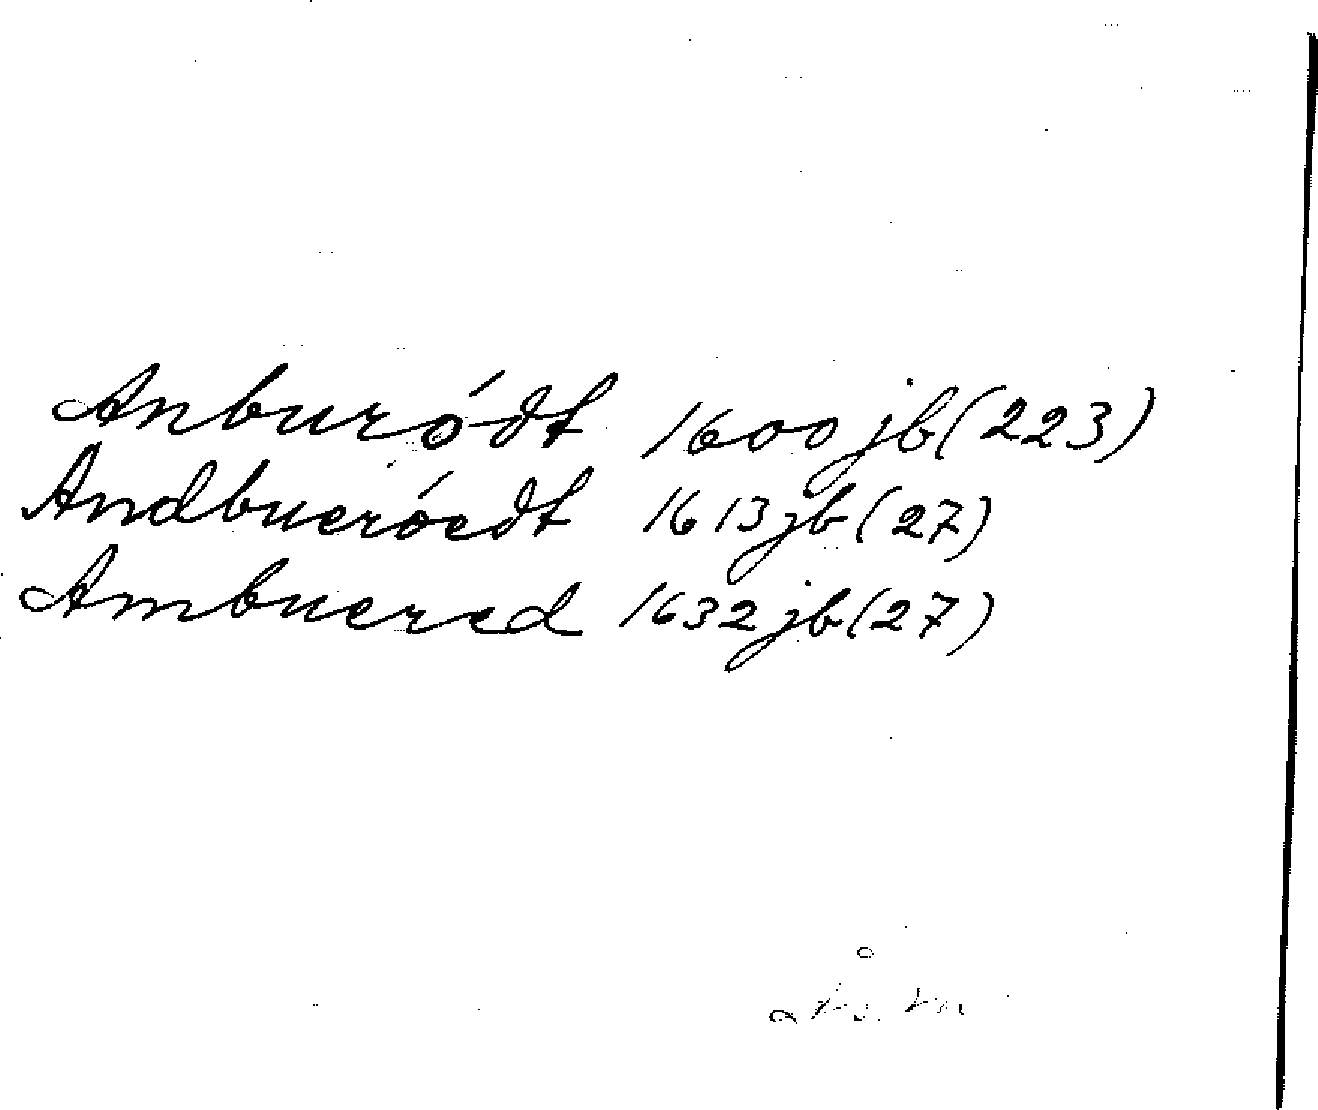 Anburódt 1600 jb (223)
Andbueróedt 1613 jb (27)
Ambuered 1632 jb (27)